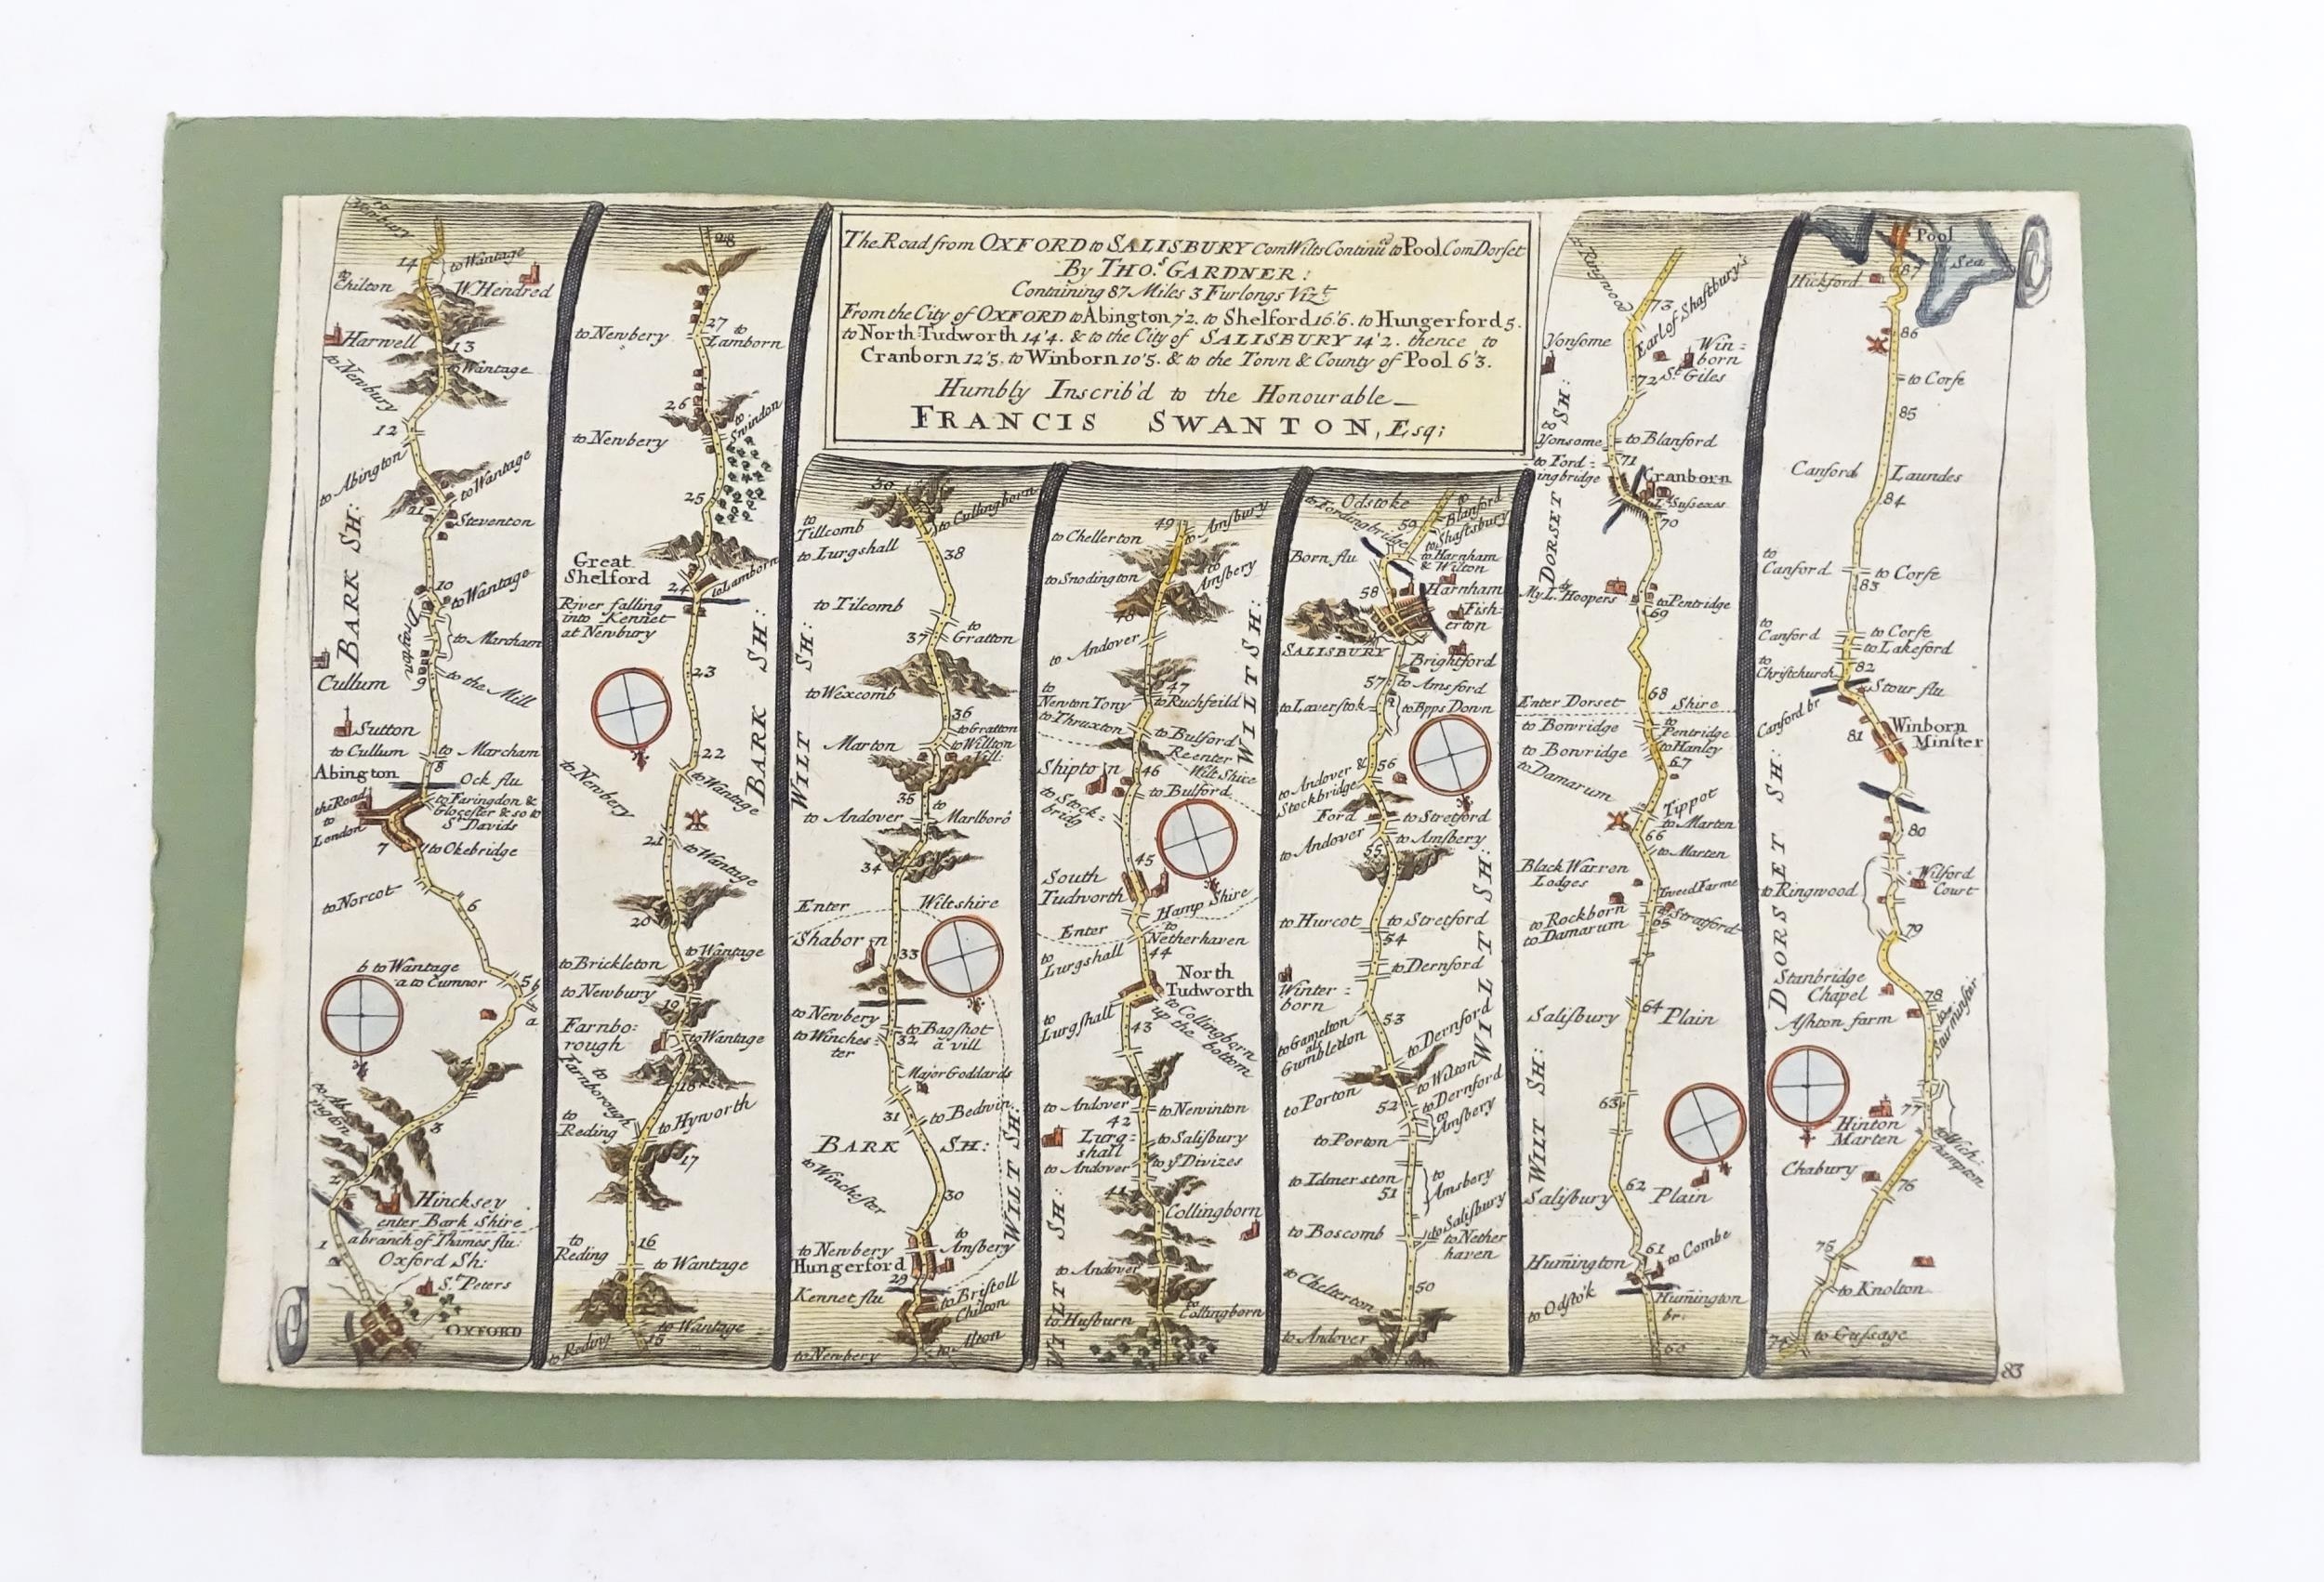 The Road from OXFORD to SALISBURY Com Wilts Continu'd to Pool Com Dorset
By THO.s GARDNER:
Containing 87 Miles 3 Furlongs Vizt.
From the City of OXFORD to Abington 7'2. to Shelford 16'6. to Hungerford 5.
to North Tudworth 14'4. & to the City of SALISBURY 14'2. thence to
Cranborn 12'5. to Winborn 10'5. & to the Town & County of Pool 6'3.
Humbly Inscrib'd to the Honourable
FRANCIS SWANTON, Esq;
to Newbury
14
to Wantage
to Chilton
W. Hendred
Harwell
13
to Wantage
to Newbury
12
to Abington
to Wantage
11
Steventon
BARK SH:
10
to Wantage
Drayton
to Marcham
9
to the Mill
Cullum
Sutton
to Cullum
to Marcham
8
Abington
Ock flu
the Road
to
London
to Faringdon &
Glocester & so to
St. Davids
7
to Okebridge
to Norcot
6
b to Wantage
a to Cumnor
5
b
a
4
to Abington
3
2
Hincksey
enter Bark Shire
1
a branch of Thames flu:
Oxford Sh:
St. Peters
OXFORD
28
27
to Newbery
to
Lamborn
26
to Swindon
to Newbery
25
Great
Shelford
24
to Lamborn
River falling
into Kennet
at Newbury
23
BARK SH:
22
to Newbery
to Wantage
21
to Wantage
20
to Wantage
to Brickleton
to Newbury
19
Farnbo:
rough
to Wantage
to
Farnborough
18
to
Reding
to Hynworth
17
to
Reding
16
to Wantage
to Reding
15
to Wantage
to Cullingborn
to
Tillcomb
to Lurgshall
38
to Tilcomb
WILT SH:
37
to
Gratton
to Wexcomb
36
to Gratton
Marton
to Willton
vill:
35
to Andover
to
Marlboro
34
Enter Wiltshire
Shaborn
33
to Newbery
to Winches
ter
to Bagshot
a vill
32
Major Goddards
31
to Bedwin
BARK SH:
to Winchester
30
WILT SH:
to Newbery
to
Amsbery
Hungerford
29
Kennet flu
to Bristoll
Chilton
to Newbery
to Alton
49
to Amsbury
to Chellerton
to Snodington
to
Amsbery
48
to Andover
47
to
Newton Tony
to Ruchfeild
to Thruxton
to Bulford
WILT SH:
Reenter
Wilt Shire
Shipton
46
to Bulford
to Stock:
bridg
45
South
Tudworth
Hamp Shire
Enter
to
Netherhaven
to
Lurgshall
44
North
Tudworth
to
Lurgshall
43
to Collingborn
up the bottom
to Andover
to Newinton
42
Lurg:
shall
to Salisbury
to Andover
to ye Divizes
41
Collingborn
WILT SH:
to Andover
to Husburn
to
Collingborn
Odstoke
to Fordingbridge
59
to
Blanford
to Shaftsbury
Born flu
to Harnham
& Wilton
58
Harnham
Fish:
erton
SALISBURY
Brightford
57
to Amsford
to Laverstok
to Bpps Down
56
to Andover &
Stockbridge
Ford
to Stretford
to Andover
to Amsbery
55
WILT SH:
to Hurcot
to Stretford
54
to Dernford
Winter:
born
53
to Gamelton
als
Gumbleton
to Dernford
to Porton
to Wilton
to Dernford
52
to
Amsbery
to Porton
to Idmerston
to
Amsbery
51
to Salisbury
to Boscomb
to Nether
haven
to Chelterton
50
to Andover
to Ringwood
73
Earl of Shaftbury's
Yonsome
Win:
born
St. Giles
72
DORSET SH:
to
Yonsome
to Blanford
to Ford:
ingbridge
71
Cranborn
70
My L. Hoopers
to Pentridge
69
68
Enter Dorset Shire
to Bowridge
to
Pentridge
to Bowridge
to Hanley
67
to Damarum
Tippot
to Marten
66
to Marten
Black Warron
Lodges
Tweed Farme
to Rockborn
to Damarum
65
to Stratford
64
Salisbury Plain
WILT SH:
63
62
Salisbury Plain
61
to Combe
Humington
to Odstok
Humington
br:
60
Pool
Sea
Hickford
87
86
to Corfe
85
Canford Laundes
84
to
Canford
to Corfe
83
to
Canford
to Corfe
to Lakeford
to
Christchurch
82
Stour flu
Canford br
Winborn
Minster
81
DORSET SH:
80
Wilford
Court
to Ringwood
79
Stanbridge
Chapel
78
Ashton farm
to
Sturminster
77
Hinton
Marten
to Wich:
hampton
Chabury
76
75
to Knolton
74
to Gussage
83